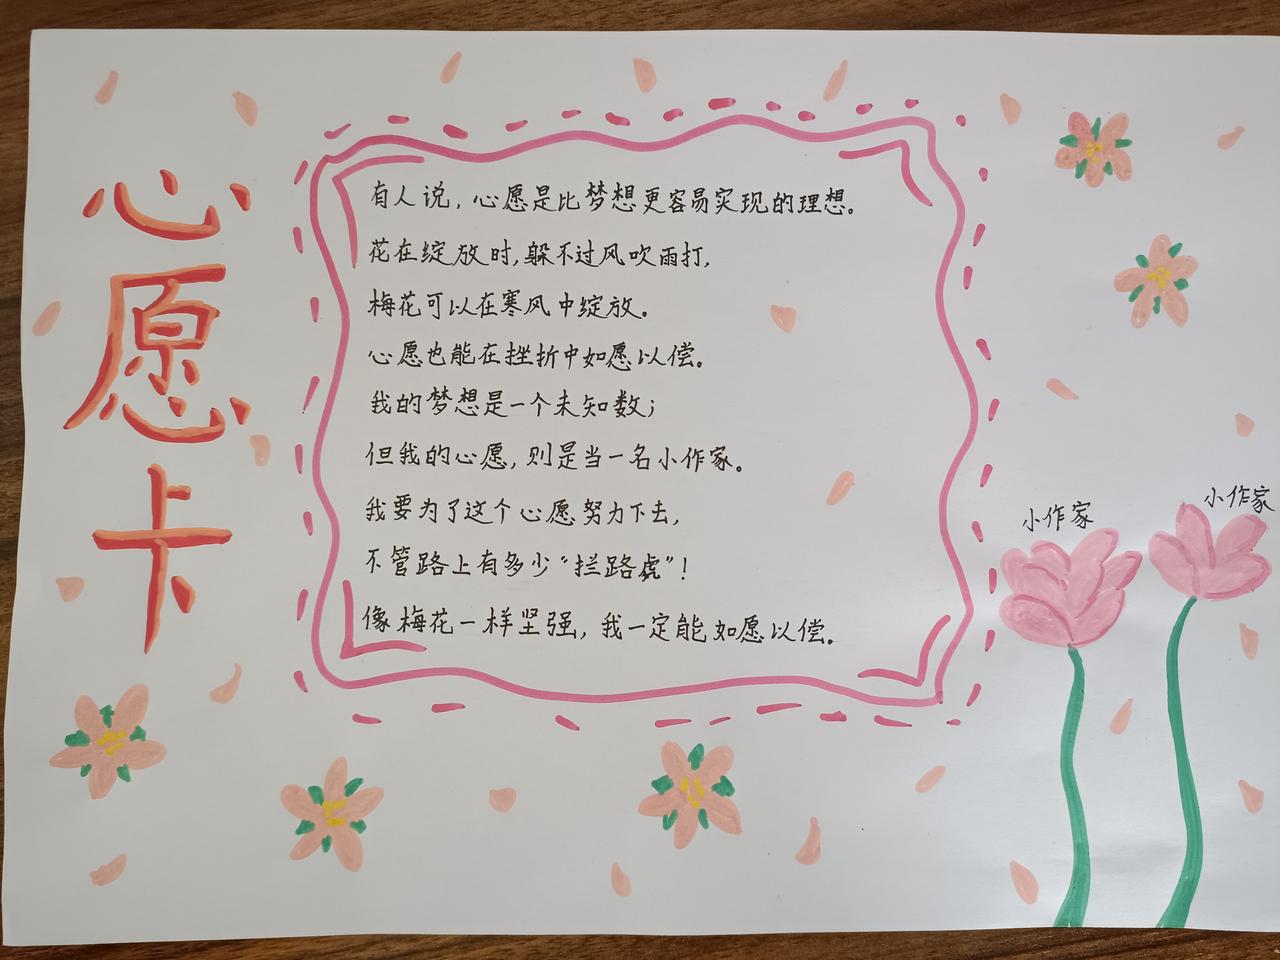 心愿卡
有人说，心愿是比梦想更容易实现的理想。
花在绽放时，躲不过风吹雨打，
梅花可以在寒风中绽放。
心愿也能在挫折中如愿以偿。
我的梦想是一个未知数；
但我的心愿，则是当一名小作家。
我要为了这个心愿努力下去，
不管路上有多少“拦路虎”！
像梅花一样坚强，我一定能如愿以偿。
小作家
小作家